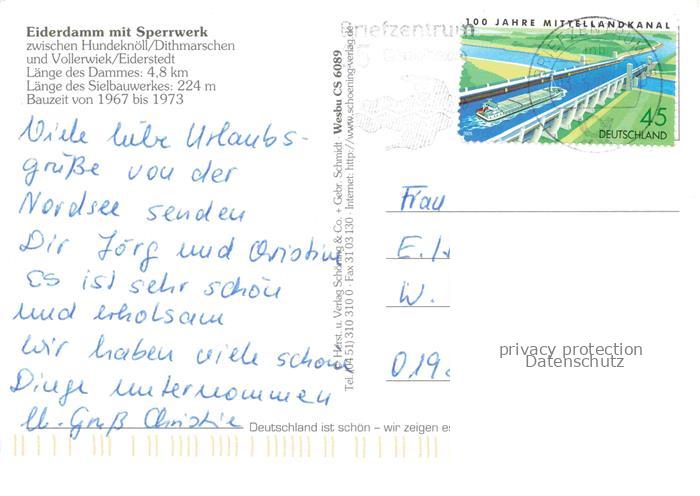 Eiderdamm mit Sperrwerk
zwischen Hundeknöll/Dithmarschen
und Vollerwiek/Eiderstedt
Länge des Dammes: 4,8 km
Länge des Sielbauwerkes: 224 m
Bauzeit von 1967 bis 1973
Viele liebe Urlaubs-
grüße von der
Nordsee senden
Dir Jörg und Christine
Es ist sehr schön
und erholsam
Wir haben viele schöne
Dinge unternommen
lb. Gruß Christie
Deutschland ist schön – wir zeigen es
Herst. u. Verlag Schöning & Co. + Gebr. Schmidt · Wesbu CS 6089
Tel. (04 51) 310 310 0 · Fax 31 03 130 · Internet: http://www.schoening-verlag.de
Briefzentrum
100 JAHRE MITTELLANDKANAL
45
DEUTSCHLAND
Frau
E.
W.
019
privacy protection
Datenschutz